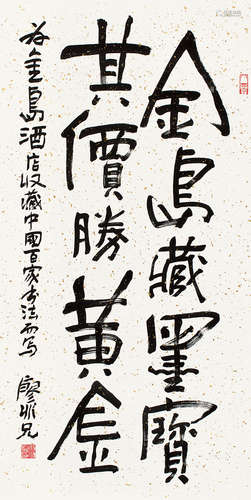 金島藏墨寶
其價勝黃金
為金島酒店收藏中國百家書法而写
廖冰兄